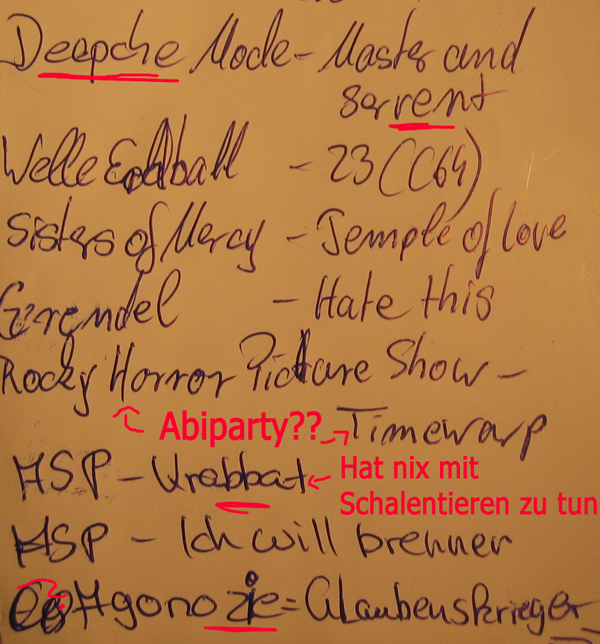 Deapche Mode - Master and
serrent
Welle Erdball - 23 (C64)
Sisters of Mercy - Temple of love
Grendel - Hate this
Rocky Horror Picture Show -
Abiparty?? Timewarp
MSP - Krabbat Hat nix mit
Schalentieren zu tun
MSP - Ich will brennen
Agonozie = Glaubenskrieger